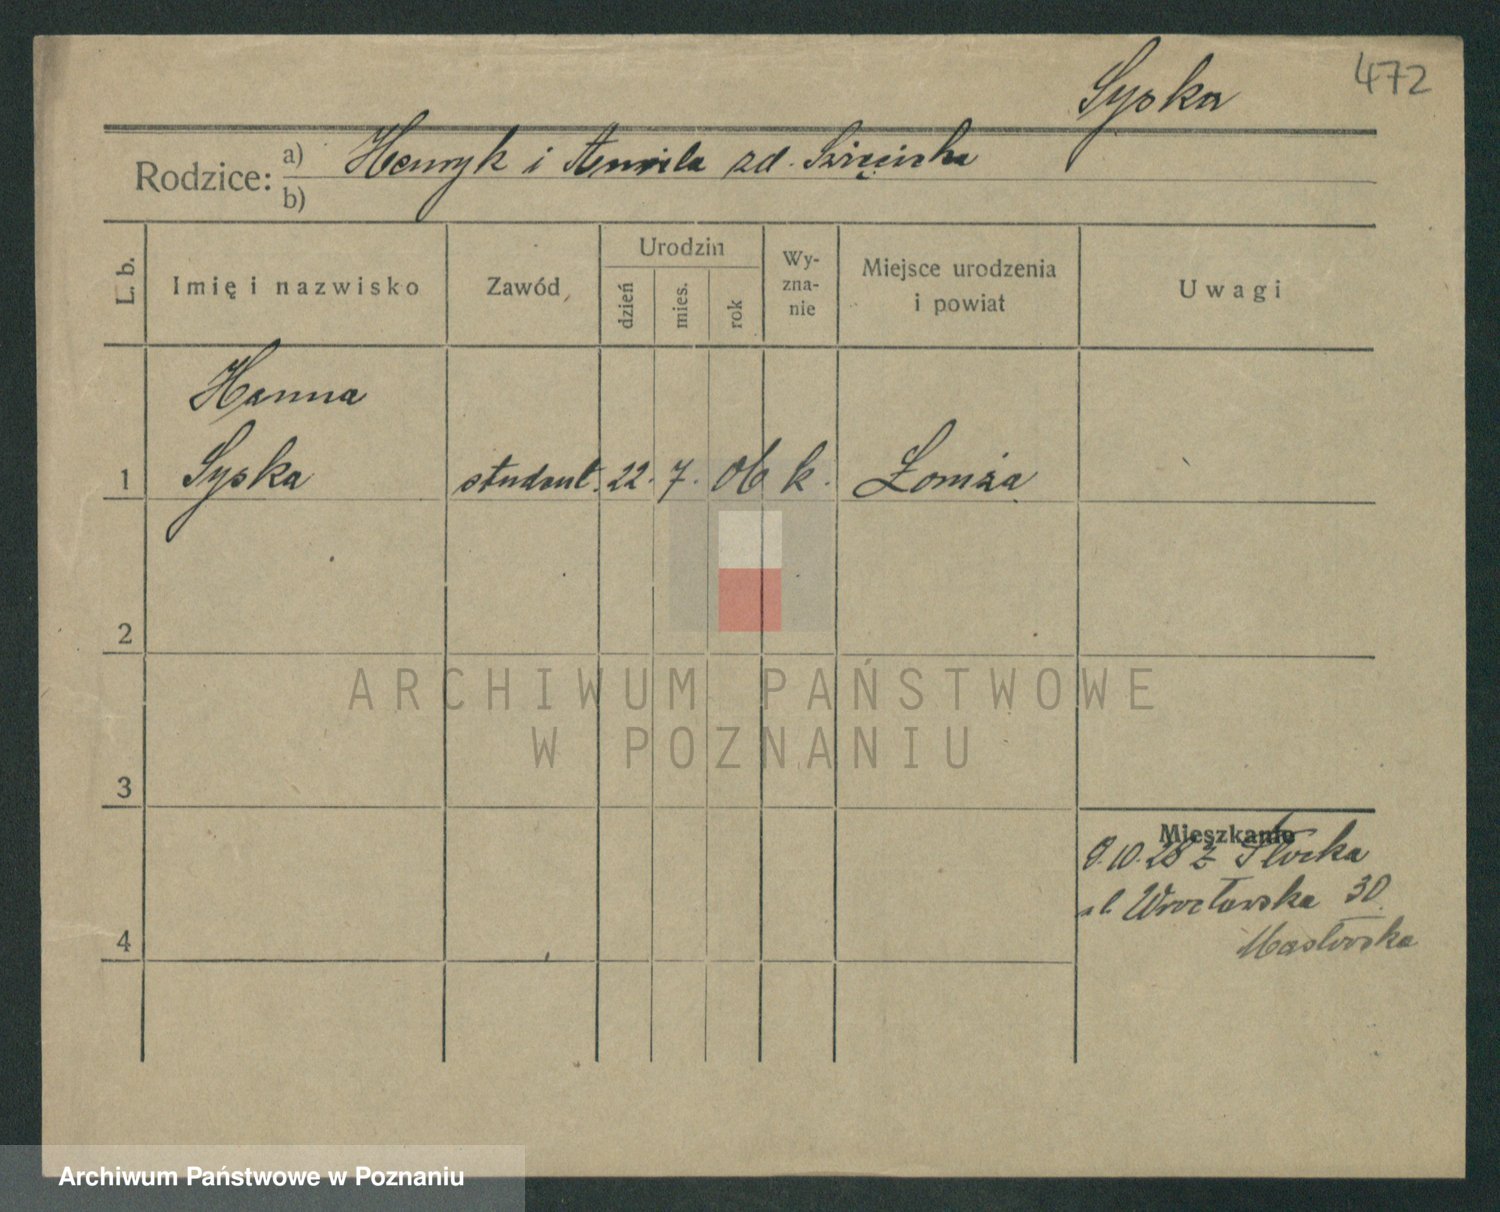 472
Syska
Rodzice: a) Henryk i Aniela zd.
b)
L. b. Imię i nazwisko Zawód Urodzin dzień mies. rok Wy-zna-nie Miejsce urodzenia i powiat Uwagi
Hanna
1 Syska student. 22. 7. 06 k. Łomża
2
ARCHIWUM PAŃSTWOWE
W POZNANIU
3
Mieszkanie
9.10.28 z Płocka
ul. Wrocławska 30
Masłowska
4
Archiwum Państwowe w Poznaniu